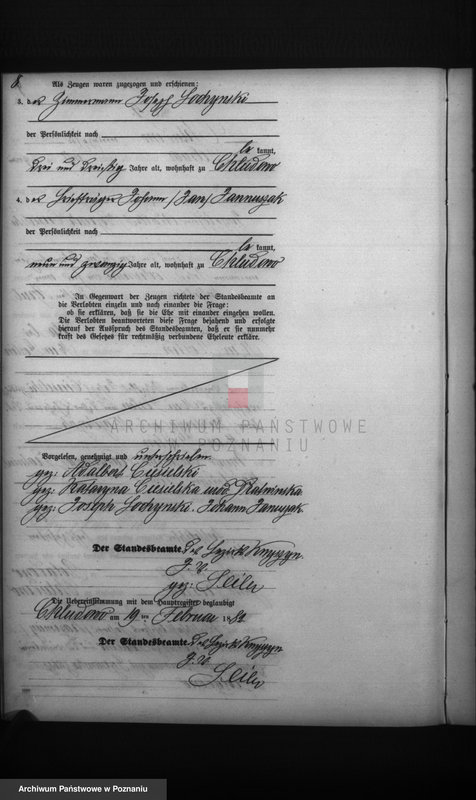 8.
Als Zeugen waren zugezogen und erschienen:
3. der Zimmermann Joseph Sochynski
der Persönlichkeit nach
be kannt,
drei und dreißig Jahre alt, wohnhaft zu Chludowo
4. der Briefträger Johann /Jan/ Januszak
der Persönlichkeit nach
be kannt,
neun und zwanzig Jahre alt, wohnhaft zu Chludowo
In Gegenwart der Zeugen richtete der Standesbeamte an
die Verlobten einzeln und nach einander die Frage:
ob sie erklären, daß sie die Ehe mit einander eingehen wollen.
Die Verlobten beantworteten diese Frage bejahend und erfolgte
hierauf der Ausspruch des Standesbeamten, daß er sie nunmehr
kraft des Gesetzes für rechtmäßig verbundene Eheleute erkläre.
ARCHIWUM PAŃSTWOWE
W POZNANIU
Vorgelesen, genehmigt und unterschrieben
gez: Adalbert Ciesielski
gez: Katarzyna Ciesielska
gez: Joseph Sochynski. Johann Januszak
Der Standesbeamte. des Bezirks
J. V.
gez: Seiler
Die Uebereinstimmung mit dem Hauptregister beglaubigt
Chludowo am 19 ten Februar 1882
Der Standesbeamte. des Bezirks
J. V.
Seiler
Archiwum Państwowe w Poznaniu